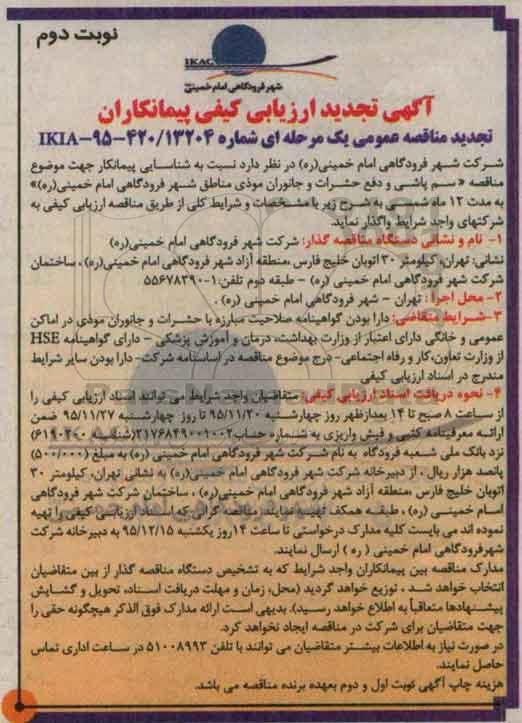 نوبت دوم
IKAC
شهر فرودگاهی امام خمینی(ره)
آگهی تجدید ارزیابی کیفی پیمانکاران
تجدید مناقصه عمومی یک مرحله ای شماره IKIA-95-420/13204
شرکت شهر فرودگاهی امام خمینی(ره) در نظر دارد نسبت به شناسایی پیمانکار جهت موضوع
مناقصه « سم پاشی و دفع حشرات و جانوران موذی مناطق شهر فرودگاهی امام خمینی(ره)»
به مدت ۱۲ ماه شمسی به شرح زیر با مشخصات و شرایط کلی از طریق مناقصه ارزیابی کیفی به
شرکتهای واجد شرایط واگذار نماید.
۱- نام و نشانی دستگاه مناقصه گذار: شرکت شهر فرودگاهی امام خمینی(ره)
نشانی: تهران، کیلومتر ۳۰ اتوبان خلیج فارس ،منطقه آزاد شهر فرودگاهی امام خمینی(ره) ، ساختمان
شرکت شهر فرودگاهی امام خمینی (ره) - طبقه دوم تلفن:۱-۵۵۶۷۸۳۹۰
۲- محل اجرا : تهران - شهر فرودگاهی امام خمینی (ره) .
۳-شرایط متقاضی: دارا بودن گواهینامه صلاحیت مبارزه با حشرات و جانوران موذی در اماکن
عمومی و خانگی دارای اعتبار از وزارت بهداشت، درمان و آموزش پزشکی - دارای گواهینامه HSE
از وزارت تعاون،کار و رفاه اجتماعی- درج موضوع مناقصه در اساسنامه شرکت- دارا بودن سایر شرایط
مندرج در اسناد ارزیابی کیفی
۴- نحوه دریافت اسناد ارزیابی کیفی: متقاضیان واجد شرایط می توانند اسناد ارزیابی کیفی را
از ساعت ۸ صبح تا ۱۴ بعدازظهر روز چهارشنبه ۹۵/۱۱/۲۰ تا روز چهارشنبه ۹۵/۱۱/۲۷ ضمن
ارائه معرفینامه کتبی و فیش واریزی به شماره حساب ۲۱۷۶۸۴۹۰۰۱۰۰۲(شناسه ۶۱۹۰۲۰۰)
نزد بانک ملی شعبه فرودگاه به نام شرکت شهر فرودگاهی امام خمینی (ره) به مبلغ (۵۰۰/۰۰۰)
پانصد هزار ریال ، از دبیرخانه شرکت شهر فرودگاهی امام خمینی(ره) به نشانی تهران، کیلومتر ۳۰
اتوبان خلیج فارس ،منطقه آزاد شهر فرودگاهی امام خمینی(ره) ، ساختمان شرکت شهر فرودگاهی
امام خمینی (ره) ، طبقه همکف تهیه نمایند. مناقصه گرانی که اسناد ارزیابی کیفی را تهیه
نموده اند می بایست کلیه مدارک درخواستی تا ساعت ۱۴ روز یکشنبه ۹۵/۱۲/۱۵ به دبیرخانه شرکت
شهرفرودگاهی امام خمینی ( ره ) ارسال نمایند.
مدارک مناقصه بین پیمانکاران واجد شرایط که به تشخیص دستگاه مناقصه گذار از بین متقاضیان
انتخاب خواهد شد ، توزیع خواهد گردید (محل، زمان و مهلت دریافت اسناد، تحویل و گشایش
پیشنهادها متعاقباً به اطلاع خواهد رسید). بدیهی است ارائه مدارک فوق الذکر هیچگونه حقی را
جهت متقاضیان برای شرکت در مناقصه ایجاد نخواهد کرد.
در صورت نیاز به اطلاعات بیشتر متقاضیان می توانند با تلفن ۵۱۰۰۸۹۹۳ در ساعت اداری تماس
حاصل نمایند.
هزینه چاپ آگهی نوبت اول و دوم بعهده برنده مناقصه می باشد.